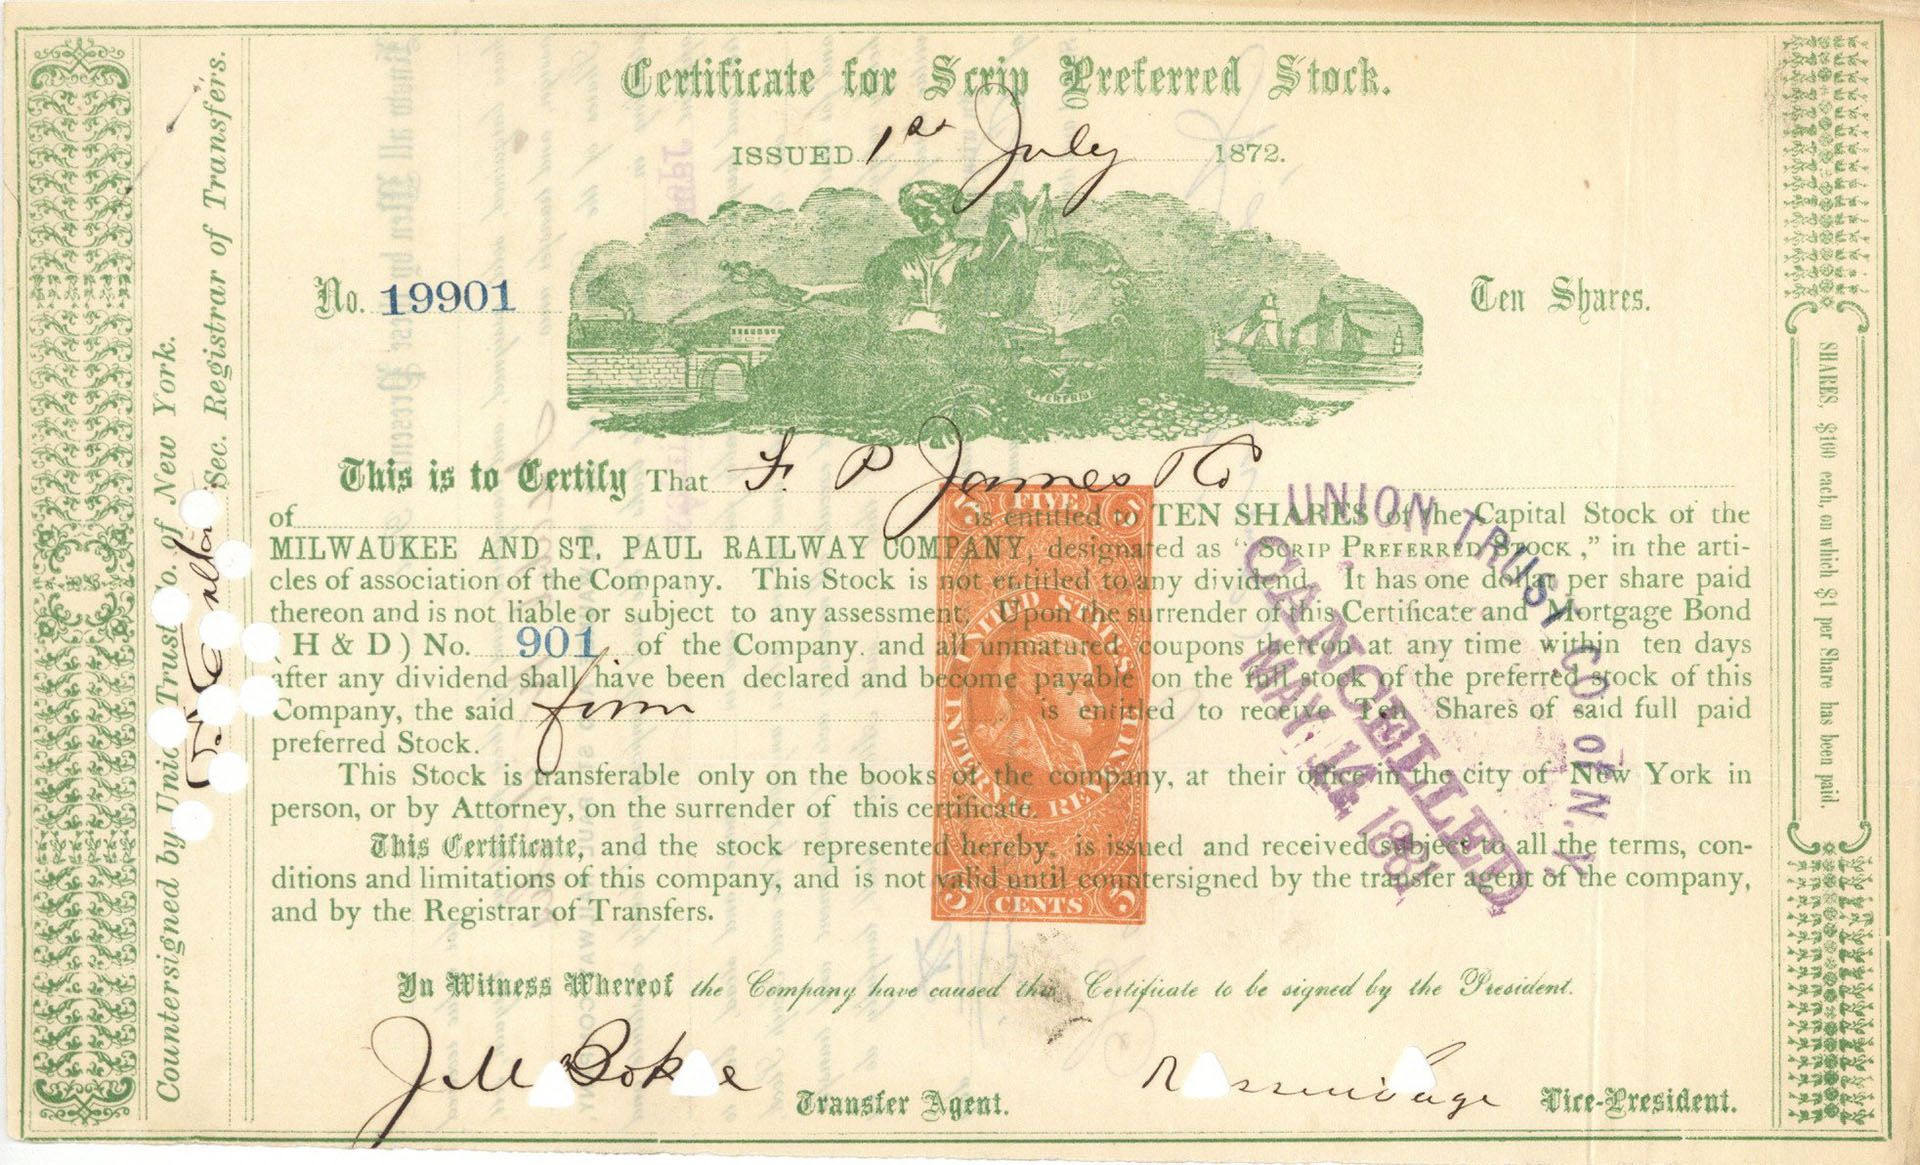 Certificate for Scrip Preferred Stock.
ISSUED 1st July 1872.
No. 19901
Ten Shares.
This is to Certify That F. P. James & Co
of is entitled to TEN SHARES of the Capital Stock of the
MILWAUKEE AND ST. PAUL RAILWAY COMPANY, designated as "SCRIP PREFERRED STOCK," in the arti-
cles of association of the Company. This Stock is not entitled to any dividend. It has one dollar per share paid
thereon and is not liable or subject to any assessment. Upon the surrender of this Certificate and Mortgage Bond
(H & D) No. 901 of the Company. and all unmatured coupons thereon at any time within ten days
after any dividend shall have been declared and become payable on the full stock of the preferred stock of this
Company, the said firm is entitled to receive Ten Shares of said full paid
preferred Stock.
This Stock is transferable only on the books of the company, at their office in the city of New York in
person, or by Attorney, on the surrender of this certificate.
This Certificate, and the stock represented hereby, is issued and received subject to all the terms, con-
ditions and limitations of this company, and is not valid until countersigned by the transfer agent of the company,
and by the Registrar of Transfers.
In Witness Whereof the Company have caused this Certificate to be signed by the President.
Transfer Agent.
Vice-President.
Countersigned by Union Trust Co. of New York.
Sec. Registrar of Transfers.
SHARES, $100 each, on which $1 per Share has been paid.
FIVE
UNITED STATES
INTERNAL REVENUE
CENTS
5 5
UNION TRUST CO OF N. Y.
CANCELLED
MAY 14 1881